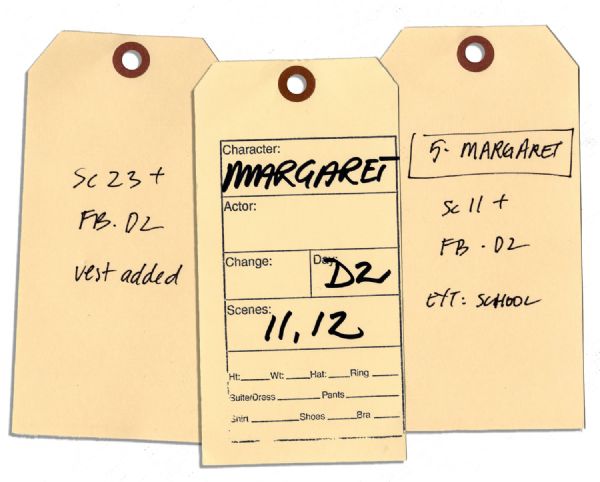 Sc 23 +
FB. D2
vest added
Character:
MARGARET
Actor:
Change:
Day:
D2
Scenes:
11, 12
Ht:____ Wt:____Hat:____Ring ____
Suite/Dress ________ Pants________
Shirt ________Shoes ____Bra ____
5. MARGARET
Sc 11 +
FB . D2
EXT: SCHOOL